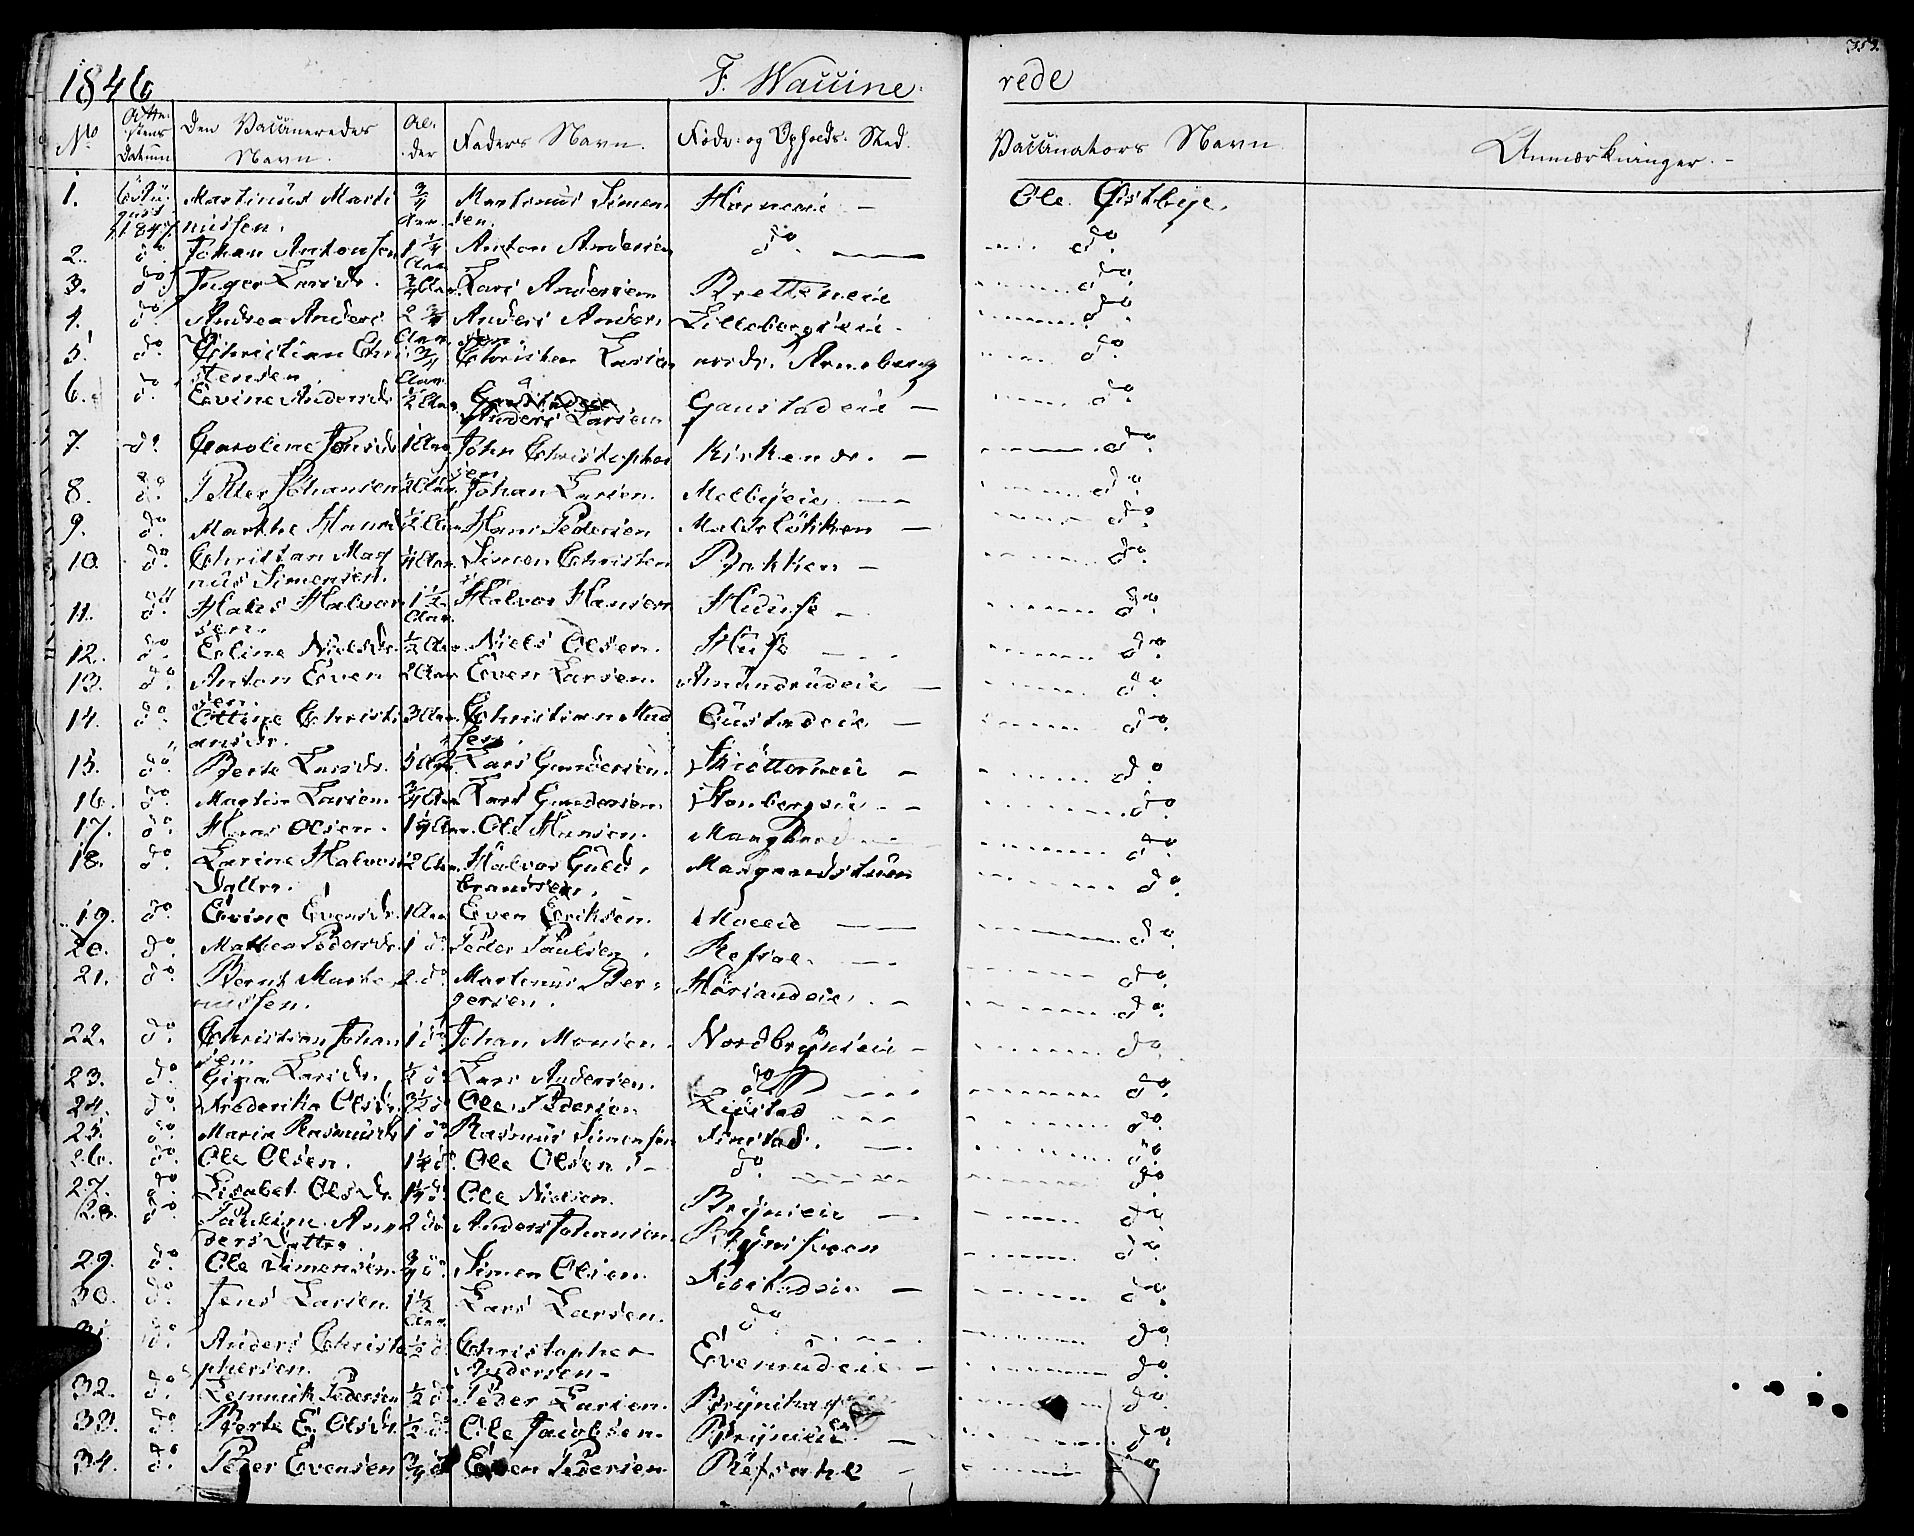 1846 F. Waccine- rede 352.
No Atte-stens Datum Den Vaccineredes Navn. Al-der Faders Navn. Føde- og Opholds-Sted. Vaccinators Navn. Anmærkninger.-
1. 6 Au-gust 1847. Martinus Marti nussen. 3/4 Aar. Martinus Simen sen. Horneeie - Ole Østbye.
2. do. Johan Antonsen 1 1/4 Aar Anton Andersen do. do.
3. do. Inger Larsdr. 3/4 Aar. Lars Andersen Bretteneie do.
4. do. Andrea Anders 2 3/4 Aar. Anders Ander- sen. Lillebergseie - do.
5. do. Christian Chri stensen 3/4 Aar. Christen Larsen nordr. Arneberg do.
6. do. Evine Andersdr 1/2 Aar. Anders Larsen Gaustadeie - do.
7. do. Caroline Johnsdr 1 Aar John Christopher sen Kirkenær. - do.
8. do. Petter Johansen 1/2 Aar. Johan Larsen. Melbyeie do.
9. do. Marthe Hansdr 1/2 Aar Hans Pedersen do.
10. do. Christian Mag nus Simensen. 1/4 Aar. Simen Christen s. Bakken - do.
11. do. Halvor sen. 1 1/2 Aar. Halvor Hansen do.
12. do. Eline Nielsdr. 1/2 Aar. Niels Olsen. do.
13. do. Anton Even sen. 2 Aar Even Larsen. Amundrudeie - do.
14. do. Ottine Christi ansdr. 3 Aar. Christian Mad sen. Gustadeie - do.
15. do. Berte Larsdr. 5 Aar. Lars Gundersen. Skiötterneie - do.
16. do. Martin Larsen. 3/4 Aar Lars Gundersen. Stenbergseie - do.
17. do. Hans Olsen. Aar. Ole Hansen. do.
18. do. Larine Halvors Datter. 2 Aar. Halvor Guld- brandsen. do.
19. do. Evine Evensdr. 1 Aar Even Eriksen. Moeeie do.
20. do. Mathea Pedersdr. 1 do. Peder Paulsen. Refsal. do.
21. do. Bernt Marti nussen. 2 do. Martinus Ber- gersen. Hörsandeie. - do.
22. do. Christian Johan sen 1 do Johan Monsen. Nordbrynseie - do.
23. do. Gina Larsdr. 1/2 do Lars Andersen. do. do.
24. do. Frederikke Olsdr. 3 1/2 do Ole Pedersen do.
25. do. Maria Rasmusdr 1 do. Rasmus Simensen Finstad. do.
26. do. Ole Olsen. 1 1/4 do. Ole Olsen.- do. do.
27. do. Lisabet Olsdr. 1 1/4 do. Ole Nielsen. Brynieie do.
28. do. Pauline An dersdatter 2 do. Anders Johansen. do.
29. do. Ole Simensen. 3/4 do. Simen Olsen. do.
30. do. Jens Larsen. 1 1/2 Aar. Lars Larsen. do. do.
31. do. Anders Christo phersen. 1/2 do. Christopher Andersen- Evenrudeie - do.
32. do. Pedersen 1/2 do. Peder Larsen. do.
33. do. Berte E. Olsdr. 1/2 do. Ole Jacobsen. Brynieie do.
34. do. Peder Evensen 3/4 do. Even Pedersen Refsahl - do.